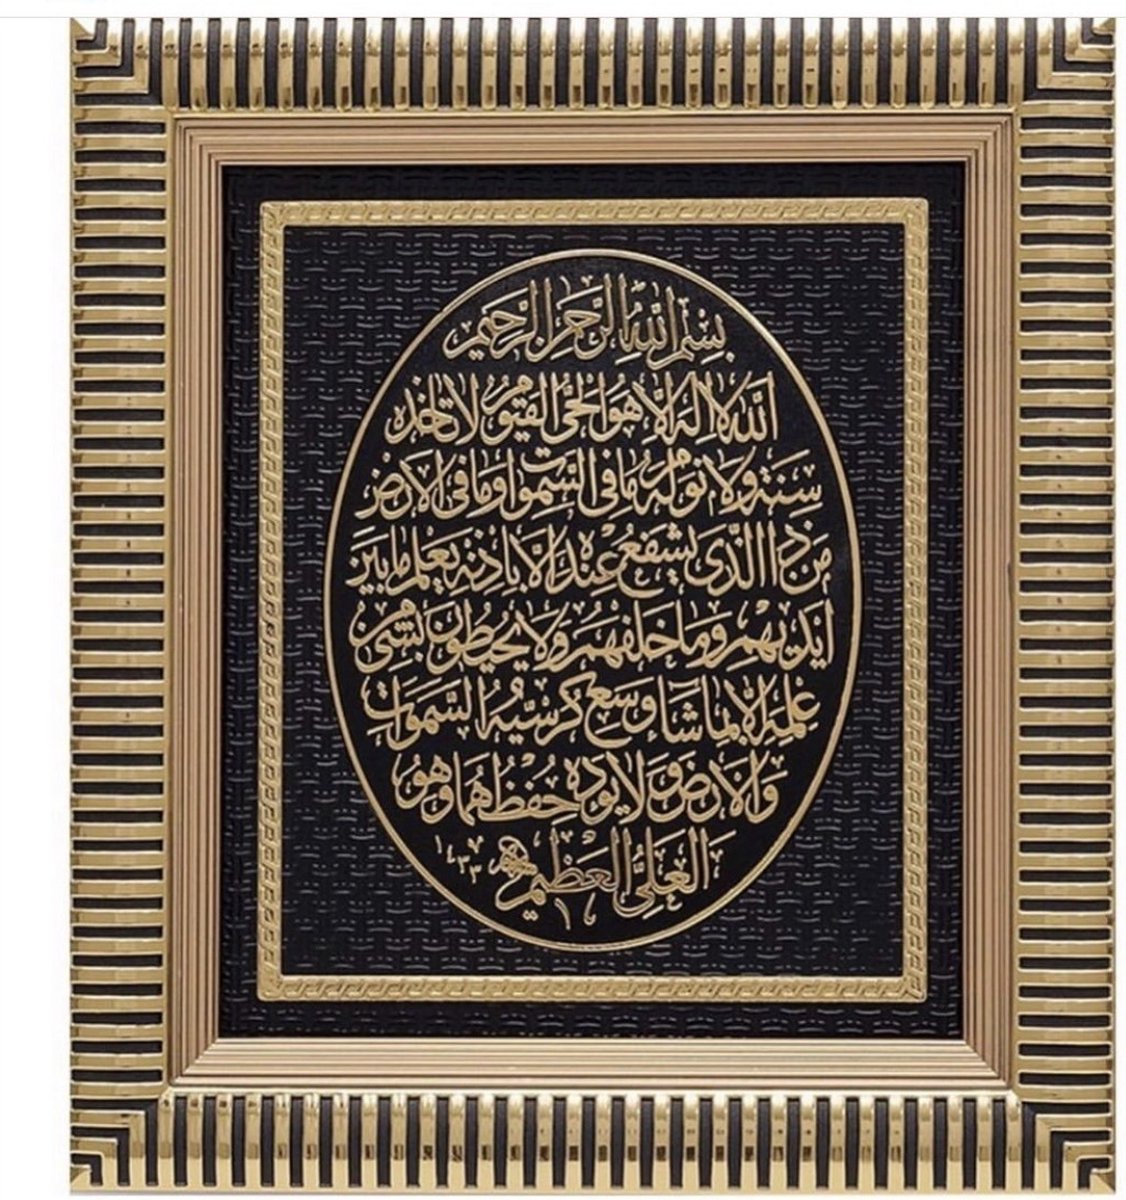 بسم الله الرحمن الرحيم
الله لا اله الا هو الحي القيوم لا تأخذه
سنة ولا نوم له ما في السموات وما في الارض
من ذا الذي يشفع عنده الا باذنه يعلم ما بين
ايديهم وما خلفهم ولا يحيطون بشئ من
علمه الا بما شاء وسع كرسيه السموات
والارض ولا يؤده حفظهما وهو
العلي العظيم
١٤٣٣